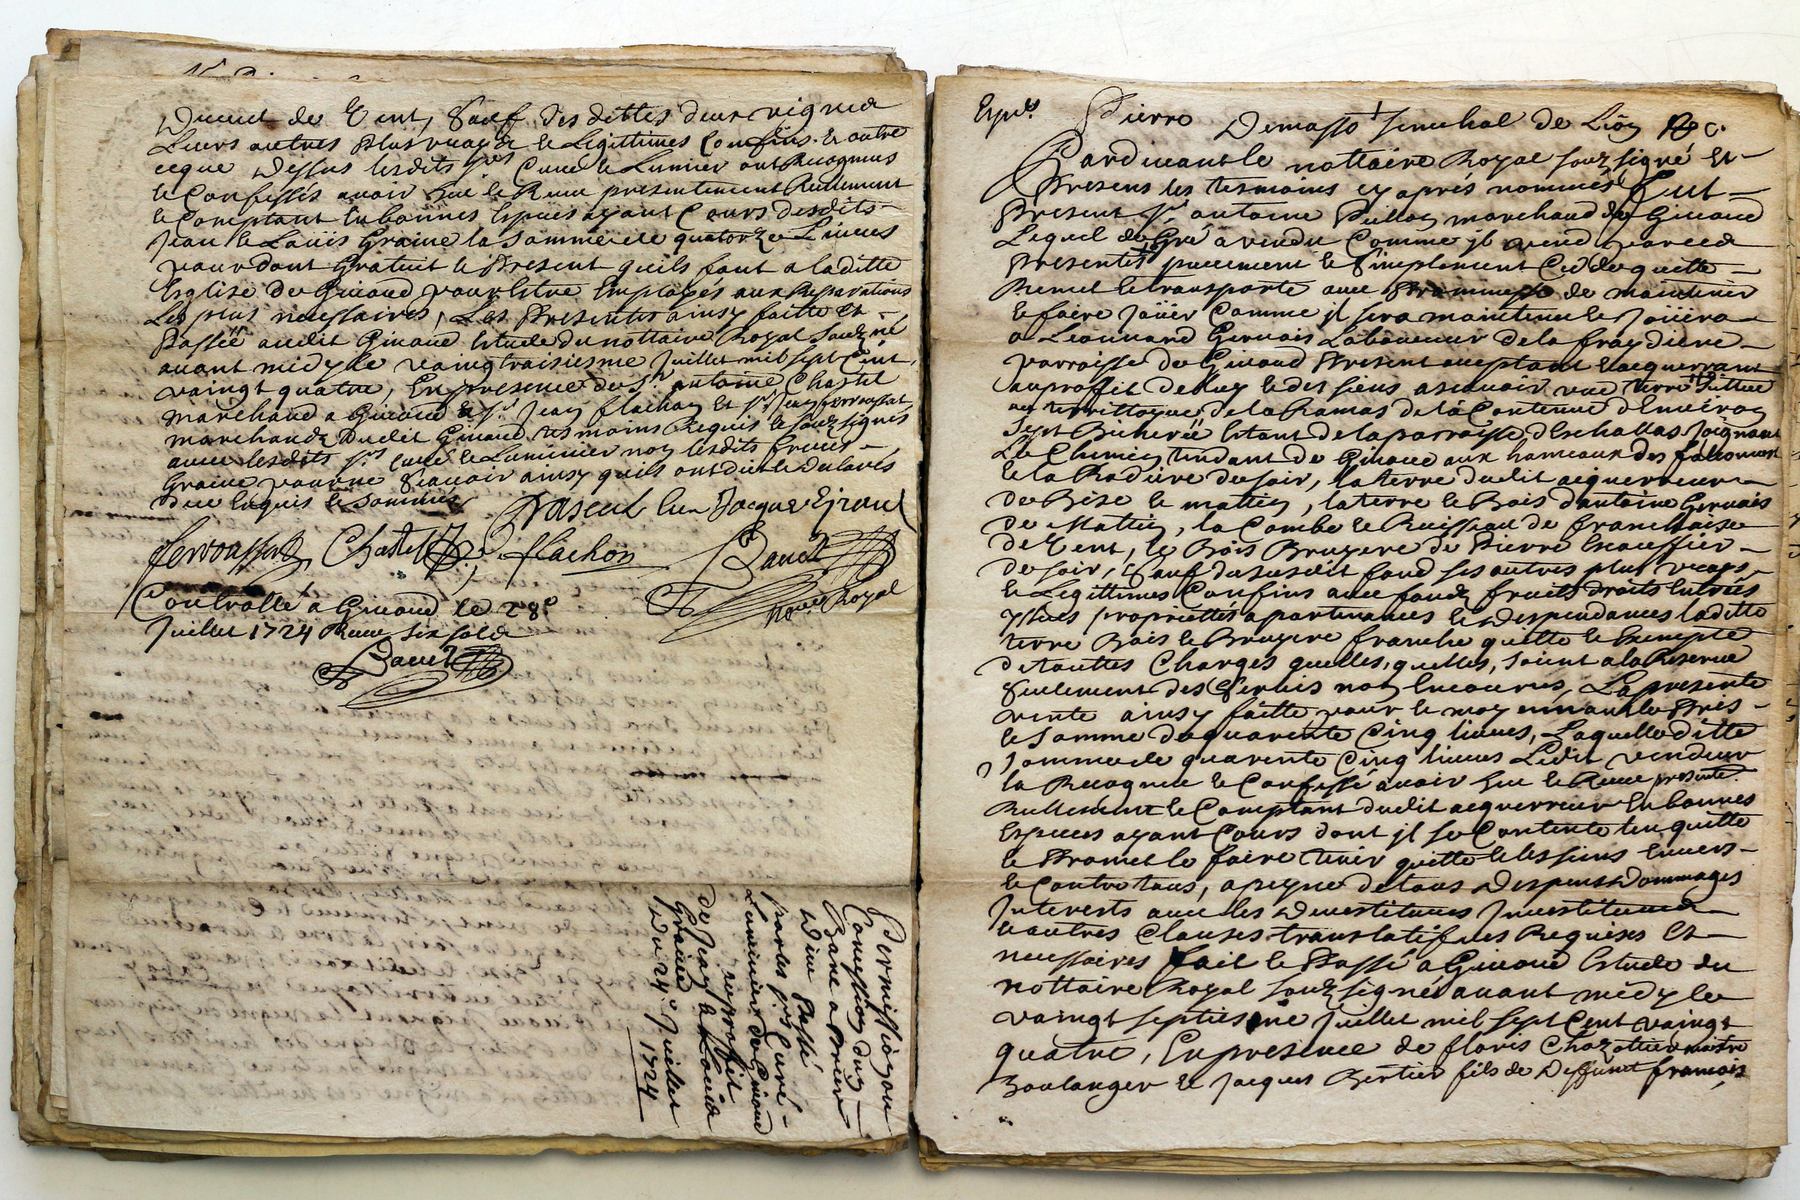 de vent, Sauf des dittes deux vignes
Leurs autres plus vrays & Legittimes Confins. & outre
ceque dessus lesdits srs Curé & Luminier ont Recognus
& Confessés avoir Heu & Receu presentement Reellement
& Comptant En bonnes Espèces ayant Cours desdits
Jean & Loüis Graine la Somme de quatorze Livres
pour don Gratuit & Present quils font a laditte
Esglise de Givord pour Estre Employés aux Reparations
Les plus necessaires, Les Presentes ainsy faitte et
Passée audit Givord Estude du nottaire Royal Soubzné
avant midy le vaingtroisiesme Juillet mil sept Cent
vaingt quatre, En presence de Sr antoine Chastel
marchand a Givord & sr Jean flachon Et sr Jean fervossat
marchands dudit Givord tesmoins Requis & soubzsignés
avec lesdits srs Curé & Luminier non lesdits freres
Graine pour ne Scavoir ainsy quils ont dit & declarés
de ce Enquis & Sommés
Jacque Giraud
Chastel flachon
nore Royal
Controllé a Givord le 28e
Juillet 1724 Receu six sols
Permission ou
Concession dun
Banc a prier
Dieu Passé
par les srs Curé
Luminier de Givord
au proffit
de Jean & Louis
Graine
Du 24e Juillet
1724
Pierre Demasso senechal de Lion &c.
Pardevant le nottaire Royal soubz signé Et
Presens les tesmoins cy aprés nommés fut
Present sr antoine Pullon marchand de Givord
Lequel de Gré a vendu Comme jl vend par ces
Presentes purement & simplement Cede quitte
Remet & transporte avec Prommesse de maintenir
& faire Joüir Comme jl sera maintenu & Joüira
a Leonnard Gervais Laboureur de la fraydiere
parroisse de Givord Present acceptant & acquerrant
au proffit de luy & des siens ascavoir une terre Scittuée
au territtoire de la Ramas de la Contenue d'Environ
sept Bicherée Estant de la parroisse d'Eschallas Joignant
Le Chemin tendant de Givord aux hameaux des
& la Radiere du soir, la terre dudit acquerreur
de Bize & mattin, la terre & Bois d'antoine Gervais
de Mattin, la Combe & Ruisseau de franchaise
de vent, le Bois Bruyere de Pierre
de soir, Sauf du susdit fond ses autres plus vrays
& Legittimes Confins avec fonds fruits droits Entrées
yssues proprietés apartenances & despendances laditte
terre Bois & Bruyere franche quitte & Exempte
de touttes Charges quelles, quelles, soient a la Reserve
seulement des Servis non Encourus, La presente
vente ainsy faitte pour & moyennant le Pres
& somme de quarente Cinq livres, Laquelle ditte
somme de quarente Cinq livres Ledit vendeur
la Recognue & Confessé avoir Heu & Receu presente.
Reellement & Comptant dudit acquerreur En bonnes
Especes ayant Cours dont jl se Contente l'en quitte
& Promet le faire tenir quitte & les siens Envers
& Contre tous, a peyne de tous despens dommages
Interests avec les devestitures Jnvestitures
& autres Clauses translatifves Requises Et
necessaires fait & Passé a Givord Estude du
nottaire Royal soubzsigné avant midy le
vaingt septiesme Juillet mil sept Cent vaingt
quatre, En presence de floris Chazottier maitre
Boulanger & Jacques Bertier fils de deffunt francois